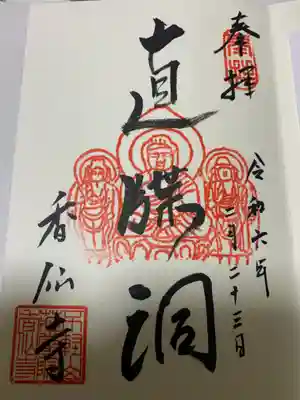 奉拝
令和六年
二月二十三日
直牒洞
香仙寺